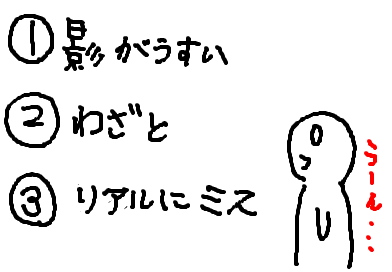 ① 影がうすい
② わざと
③ リアルにミス
うーん...